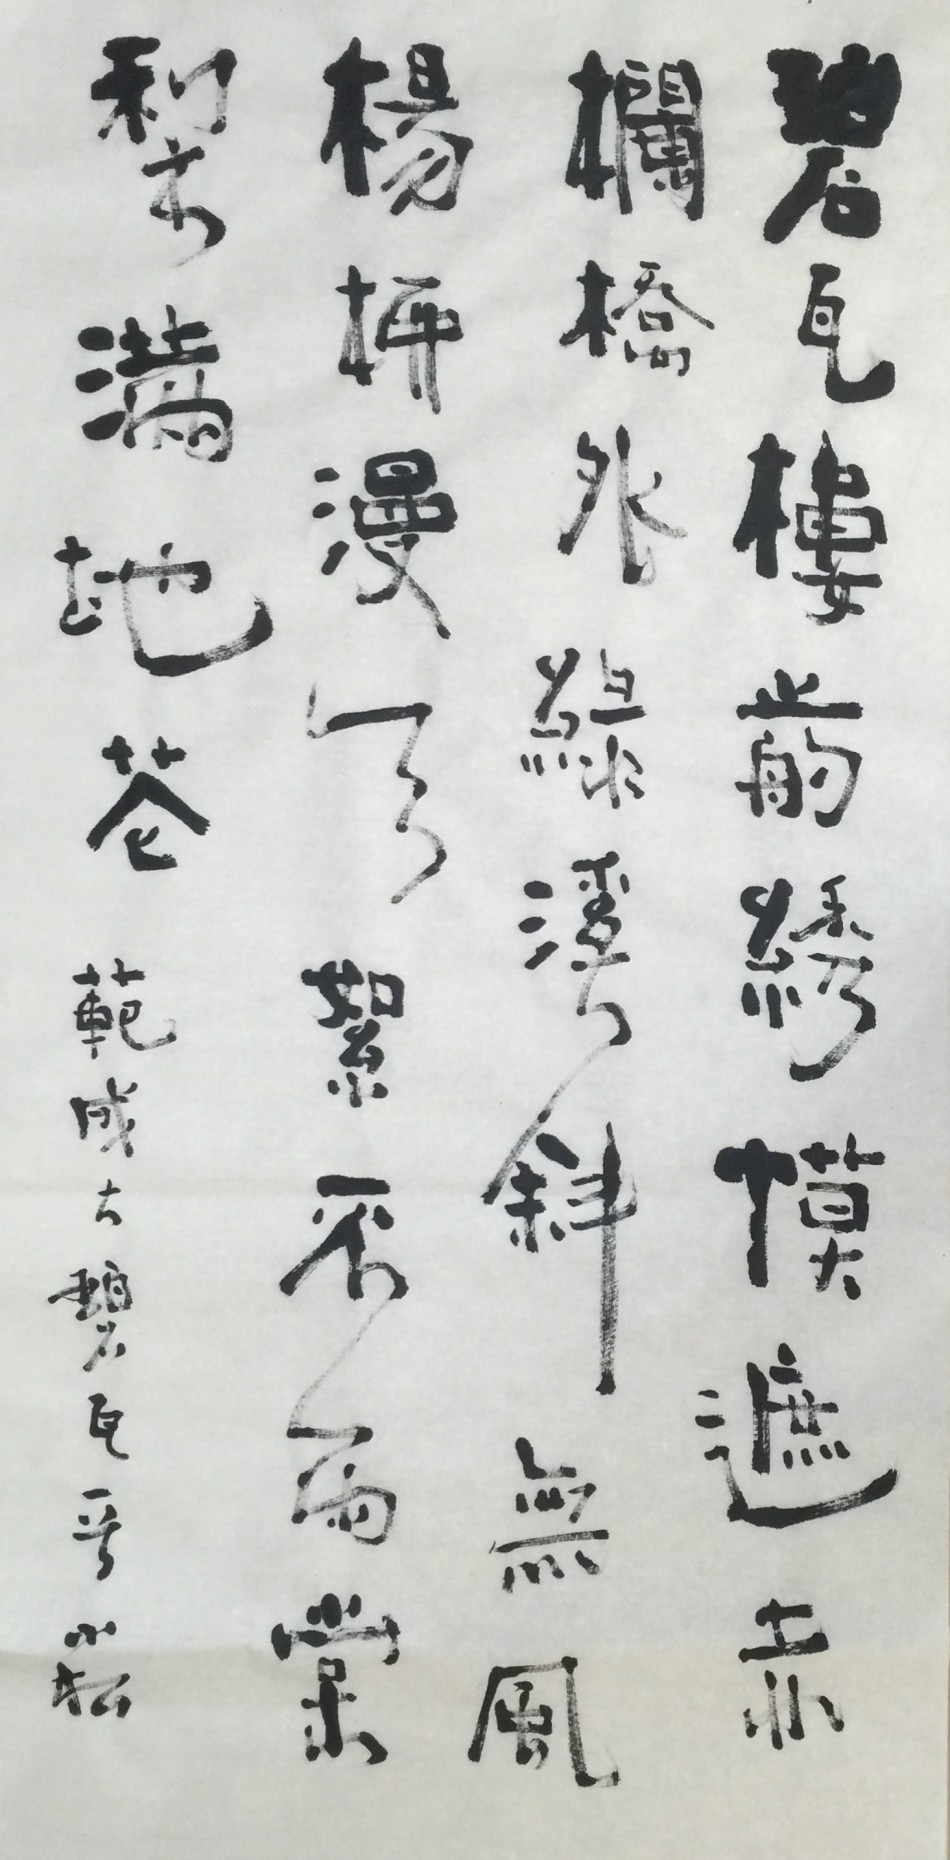 碧瓦樓前綉幙遮赤
欄橋外綠溪斜無風
楊柳漫天絮不雨棠
梨滿地花 範成大碧瓦 小松